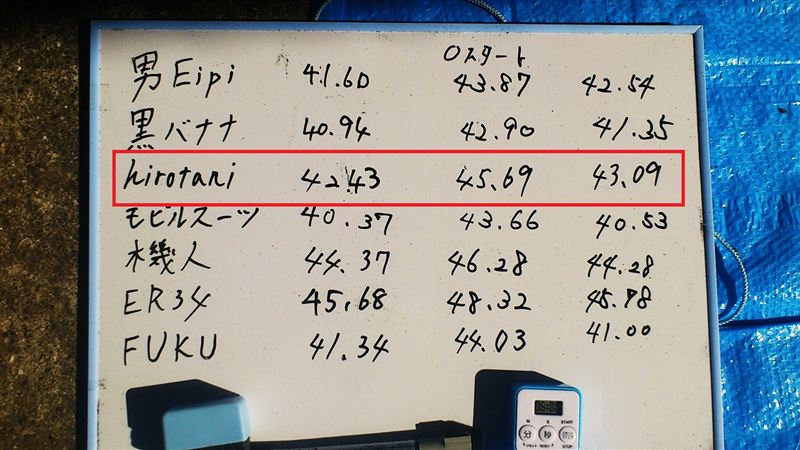 0スタート
男Eipi 41.60 43.87 42.54
黒バナナ 40.94 42.90 41.35
hirotani 42.43 45.69 43.09
モビルスーツ 40.37 43.66 40.53
機人 44.37 46.28 44.28
ER34 45.68 48.32 45.78
FUKU 41.34 44.03 41.00
M S START
分 秒
RESET STOP